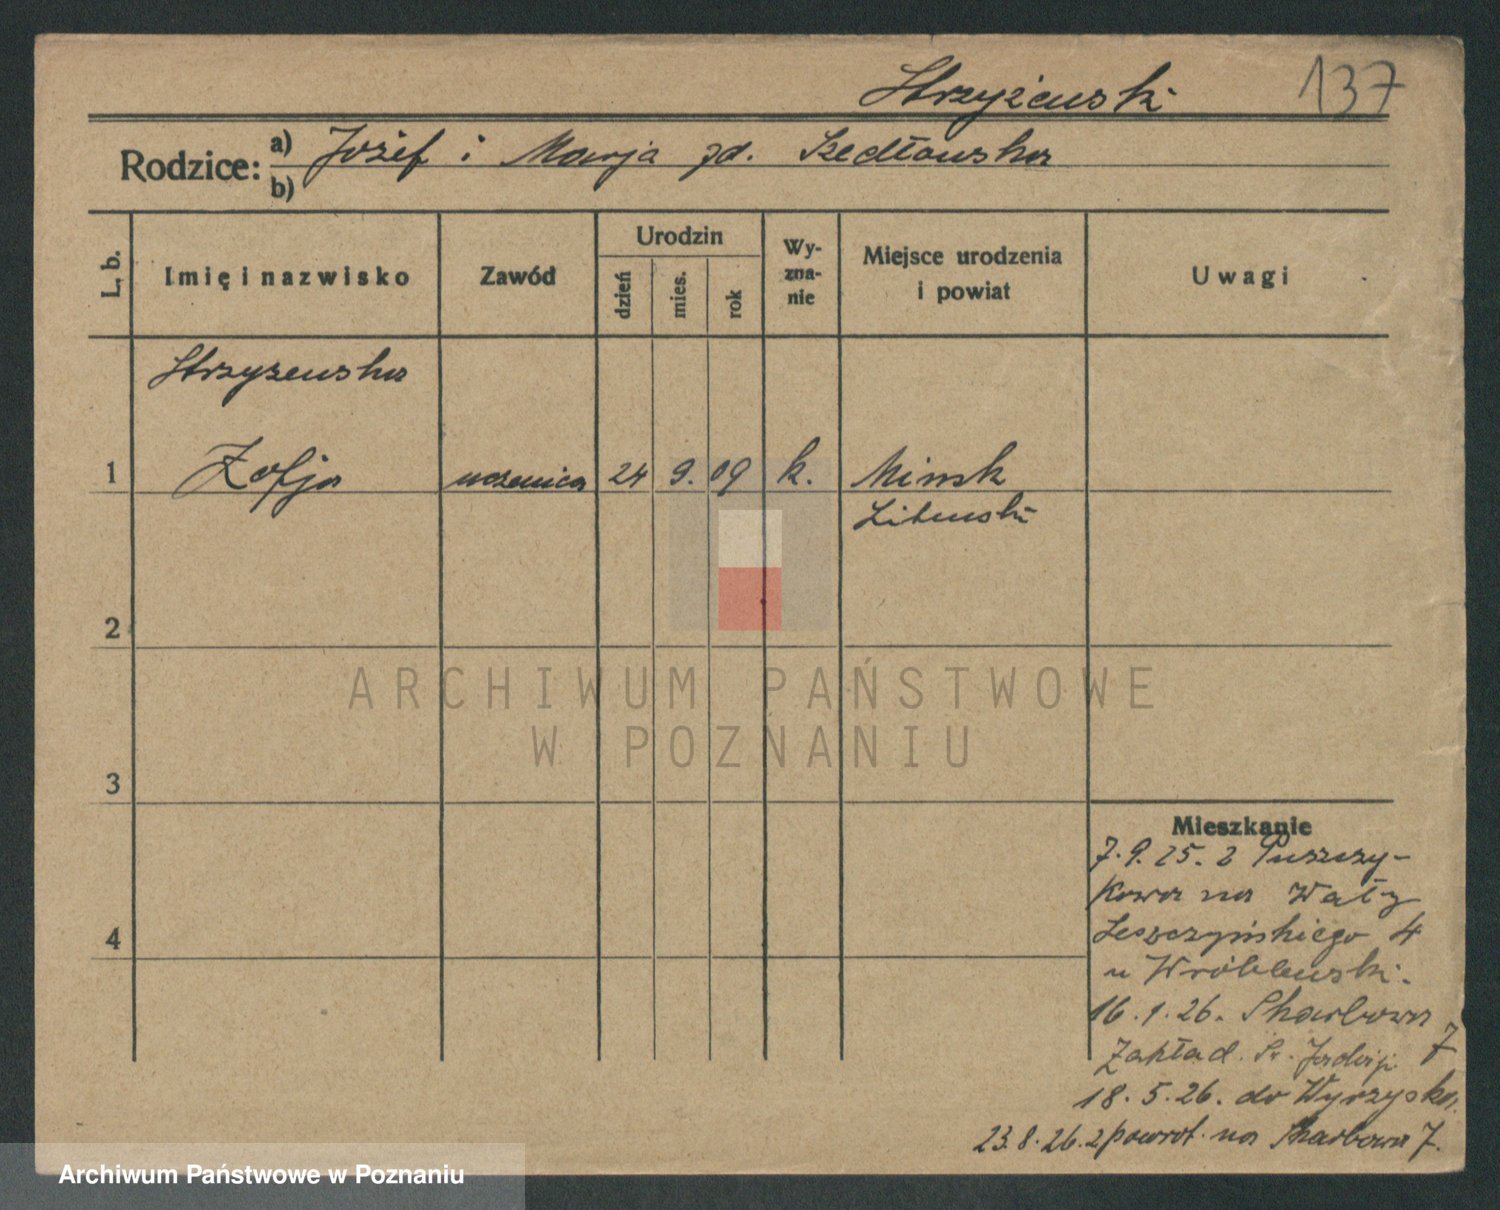 Strzyżewski 137
Rodzice: a) Józef i Marja zd. Szedłowska
b)
L. b. Imię i nazwisko Zawód Urodzin dzień mies. rok Wy-zna-nie Miejsce urodzenia i powiat Uwagi
Strzyzewska
1 Zofja uczenica 24 9. 09 k. Minsk
Litewski
2
ARCHIWUM PAŃSTWOWE
W POZNANIU
3
Mieszkanie
7.9.25. z Puszczy-
kowa na Wały
Leszczyńskiego 4
u Wróblewski.
4
16.1.26. Skarbowa 7
Zakład. Św. Jadwigi.
18.5.26. do Wyrzyska.
23.8.26. z powrot. na Skarbowa 7.
Archiwum Państwowe w Poznaniu